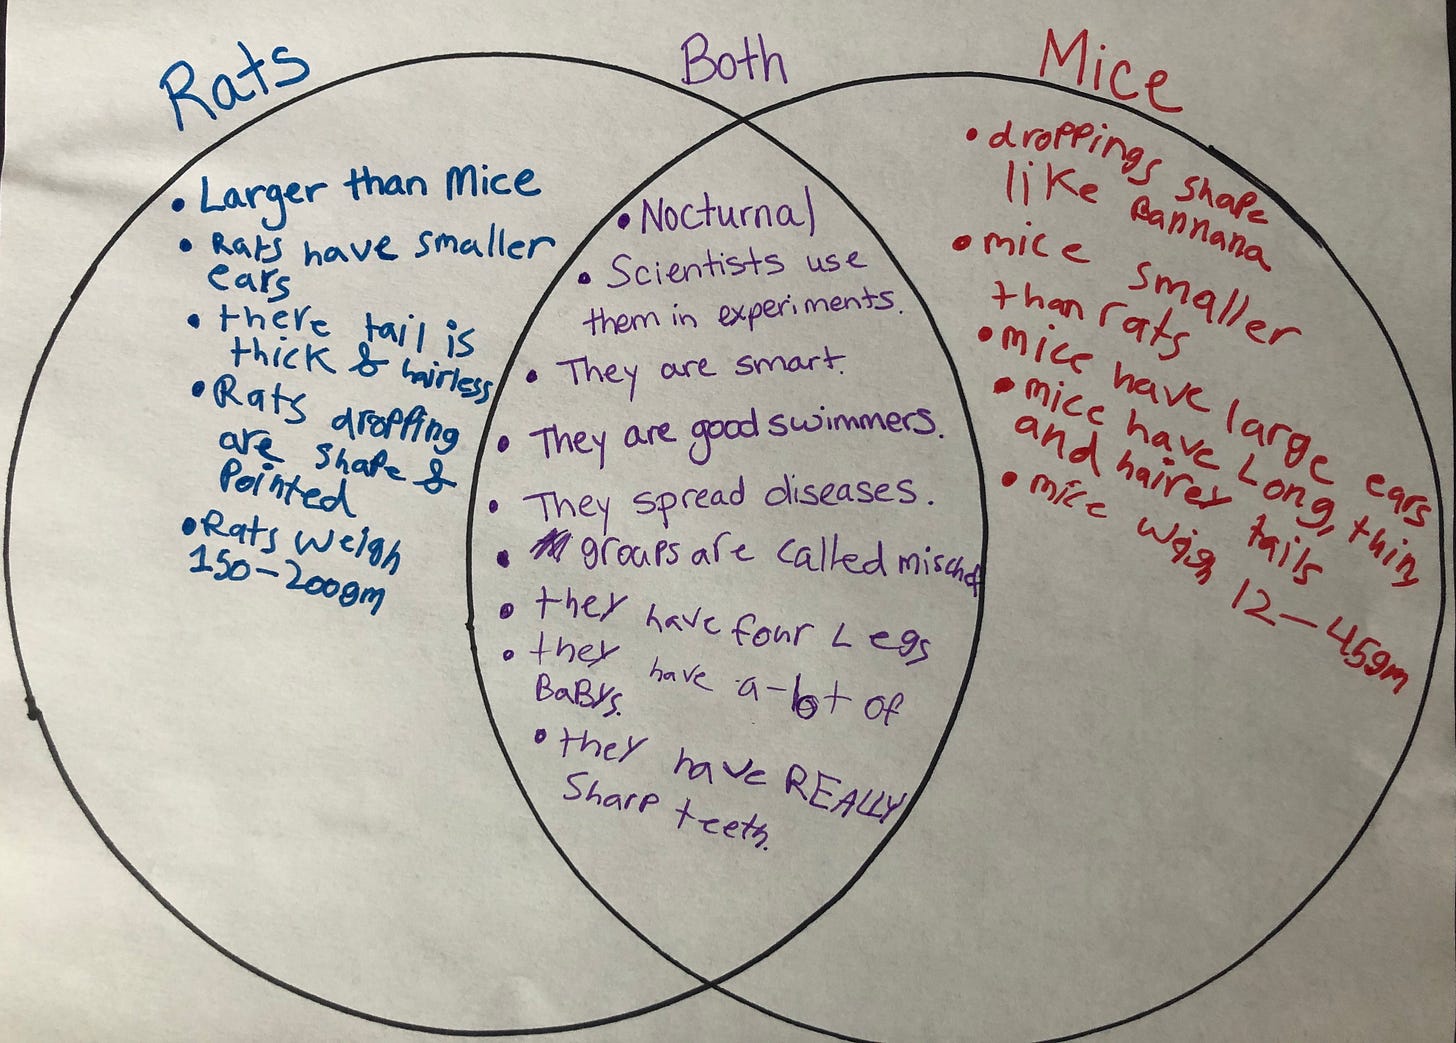 Rats
• Larger than Mice
• Rats have smaller
ears
• there tail is
thick & hairless
• Rats dropping
are shape &
Pointed
• Rats weigh
150-200gm
Both
• Nocturnal
• Scientists use
them in experiments.
• They are smart.
• They are good swimmers.
• They spread diseases.
• groups are called mischef
• they have four Legs
• they have a-lot of
BaBys.
• they have REALLY
Sharp teeth.
Mice
• droppings shape
like Bannana
• mice smaller
than rats
• mice have large ears
• mice have Long, thin,
and hairey tails
• mice weigh 12-45gm